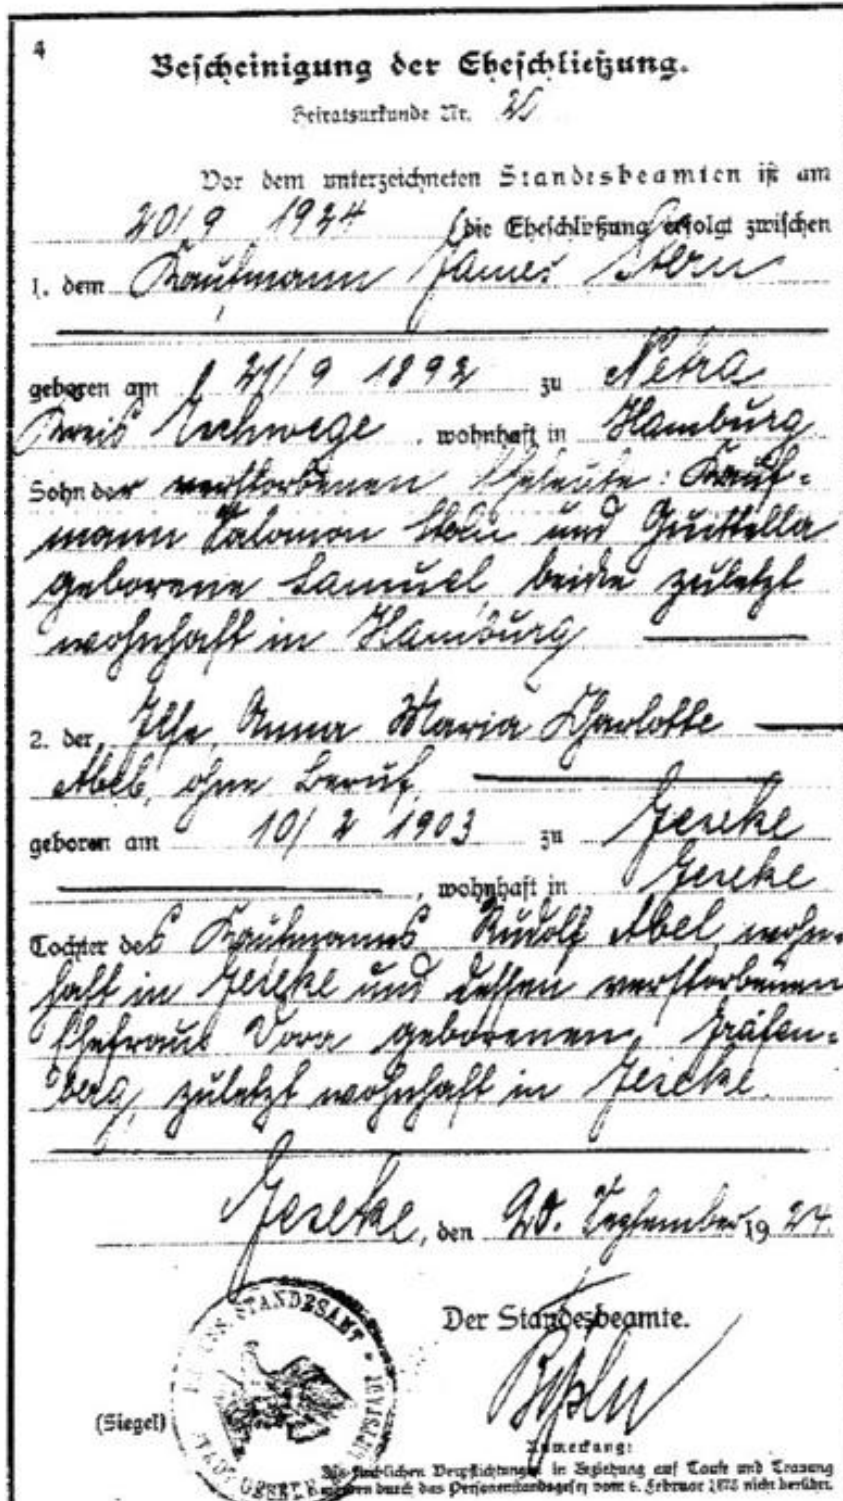 4
Bescheinigung der Eheschließung.
Heiratsurkunde Nr.
Vor dem unterzeichneten Standesbeamten ist am
20/9 1924 die Eheschließung erfolgt zwischen
1. dem Kaufmann James Stern
geboren am 21/9 1892 zu Netra
Kreis Eschwege, wohnhaft in Hamburg
Sohn der verstorbenen Eheleute: Kauf-
mann Salomon Stern und
geborene Samuel, beide zuletzt
wohnhaft in Hamburg
2. der Ilse, Anna Maria Charlotte
Abel, ohne Beruf,
geboren am 10/2 1903 zu Geseke
, wohnhaft in Geseke
Tochter des Kaufmanns Rudolf Abel, wohn-
haft in Geseke und dessen verstorbenen
Ehefrau Dora geborenen Gräfen-
berg, zuletzt wohnhaft in Geseke.
Geseke, den 20. September 1924.
Der Standesbeamte.
(Siegel)
STANDESAMT
STADT GESEKE LIPPSTADT
Anmerkung:
Die kirchlichen Verpflichtungen in Beziehung auf Taufe und Trauung
werden durch das Personenstandsgesetz vom 6. Februar 1875 nicht berührt.